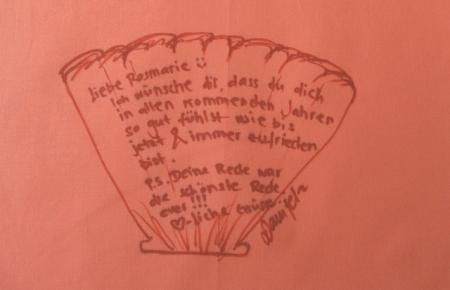 Liebe Rosmarie ☺
Ich wünsche dir, dass du dich
in allen kommenden Jahren
so gut fühlst wie bis
jetzt & immer zufrieden
bist.
P.S. Deine Rede war
die schönste Rede
ever!!!
♡-liche Grüsse